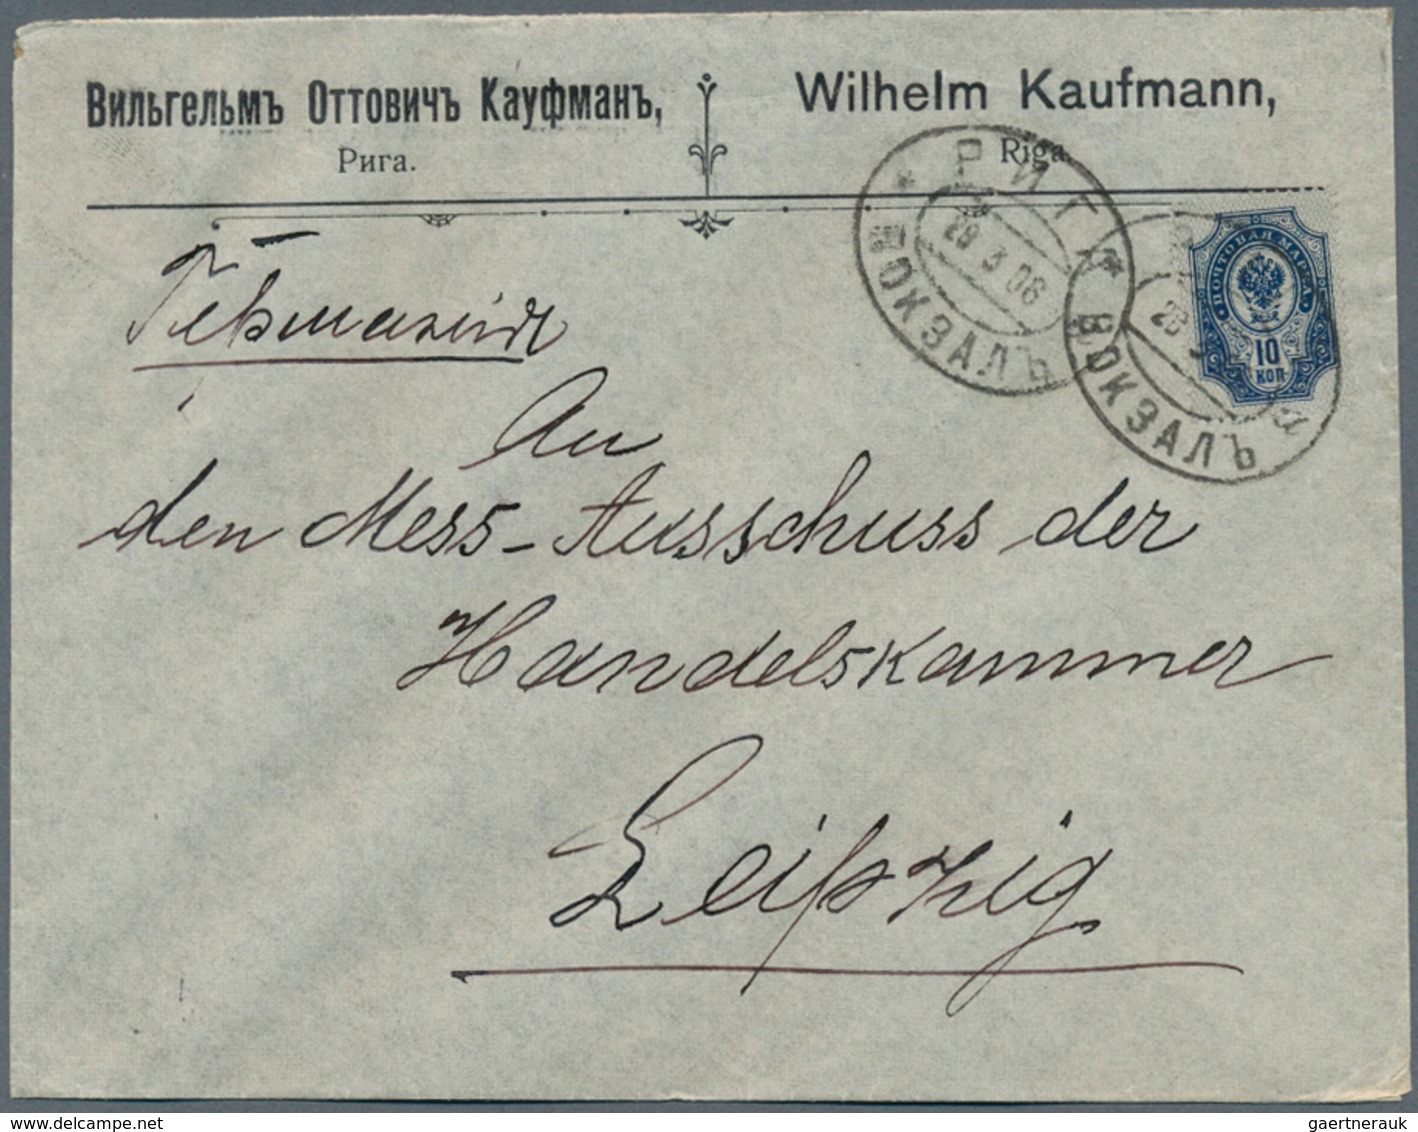 Вильгельмъ Оттовичъ Кауфманъ,
Рига.
Wilhelm Kaufmann,
Riga.
РИГА
28 3 06
ВОКЗАЛЪ
28
ВОКЗАЛЪ
а
ПОЧТОВАЯ МАРКА
10
КОП
Германія
An
den Mess-Ausschuss der
Handelskammer
Leipzig
gaertnerauk